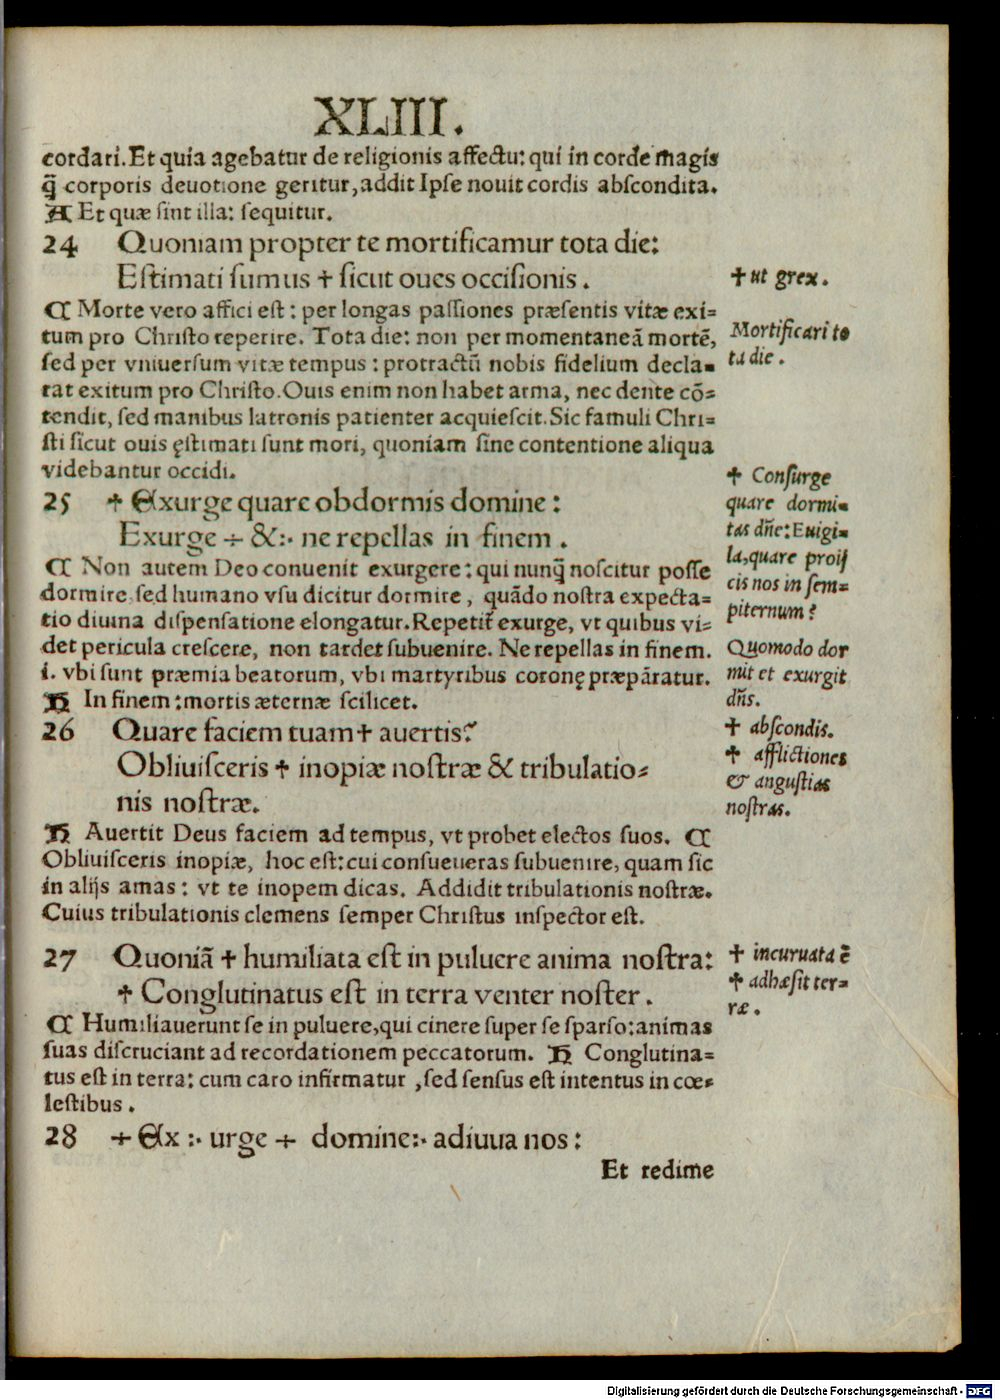 XLIII.
cordari.Et quia agebatur de religionis affectu: qui in corde magis
q̃ corporis deuotione geritur,addit Ipse nouit cordis abscondita.
A Et quæ sint illa: sequitur.
24 Quoniam propter te mortificamur tota die:
Estimati sumus ✝ sicut oues occisionis.
✝ ut grex.
C Morte vero affici est: per longas passiones præsentis vitæ exi=
tum pro Christo reperire. Tota die: non per momentaneā mortē,
sed per vniuersum vitæ tempus: protractū nobis fidelium decla=
rat exitum pro Christo.Ouis enim non habet arma, nec dente cō=
tendit, sed manibus latronis patienter acquiescit.Sic famuli Chri=
sti sicut ouis ęstimati sunt mori, quoniam sine contentione aliqua
videbantur occidi.
Mortificari to
ta die.
25 ✝ Exurge quare obdormis domine:
Exurge ÷ &:· ne repellas in finem.
C Non autem Deo conuenit exurgere: qui nunq̃ noscitur posse
dormire, sed humano vsu dicitur dormire, quādo nostra expecta=
tio diuina dispensatione elongatur.Repetit̃ exurge, vt quibus vi=
det pericula crescere, non tardet subuenire. Ne repellas in finem.
i. vbi sunt præmia beatorum, vbi martyribus coronę præpāratur.
H In finem: mortis æternæ scilicet.
✝ Consurge
quare dormi=
tas dn̄e: Euigi=
la,quare proij
cis nos in sem=
piternum?
Quomodo dor
mit et exurgit
dn̄s.
26 Quare faciem tuam ✝ auertis?
Obliuisceris ✝ inopiæ nostræ & tribulatio=
nis nostræ.
✝ abscondis.
✝ afflictiones
& angustias
nostras.
H Auertit Deus faciem ad tempus, vt probet electos suos. C
Obliuisceris inopiæ, hoc est: cui consueueras subuenire, quam sic
in alijs amas: vt te inopem dicas. Addidit tribulationis nostræ.
Cuius tribulationis clemens semper Christus inspector est.
27 Quoniā ✝ humiliata est in puluere anima nostra:
✝ Conglutinatus est in terra venter noster.
✝ incuruata ē
✝ adhæsit ter=
ræ.
C Humiliauerunt se in puluere,qui cinere super se sparso: animas
suas discruciant ad recordationem peccatorum. H Conglutina=
tus est in terra: cum caro infirmatur, sed sensus est intentus in cœ=
lestibus.
28 ÷ Ex :· urge ÷ domine:· adiuua nos:
Et redime
Digitalisierung gefördert durch die Deutsche Forschungsgemeinschaft - DFG